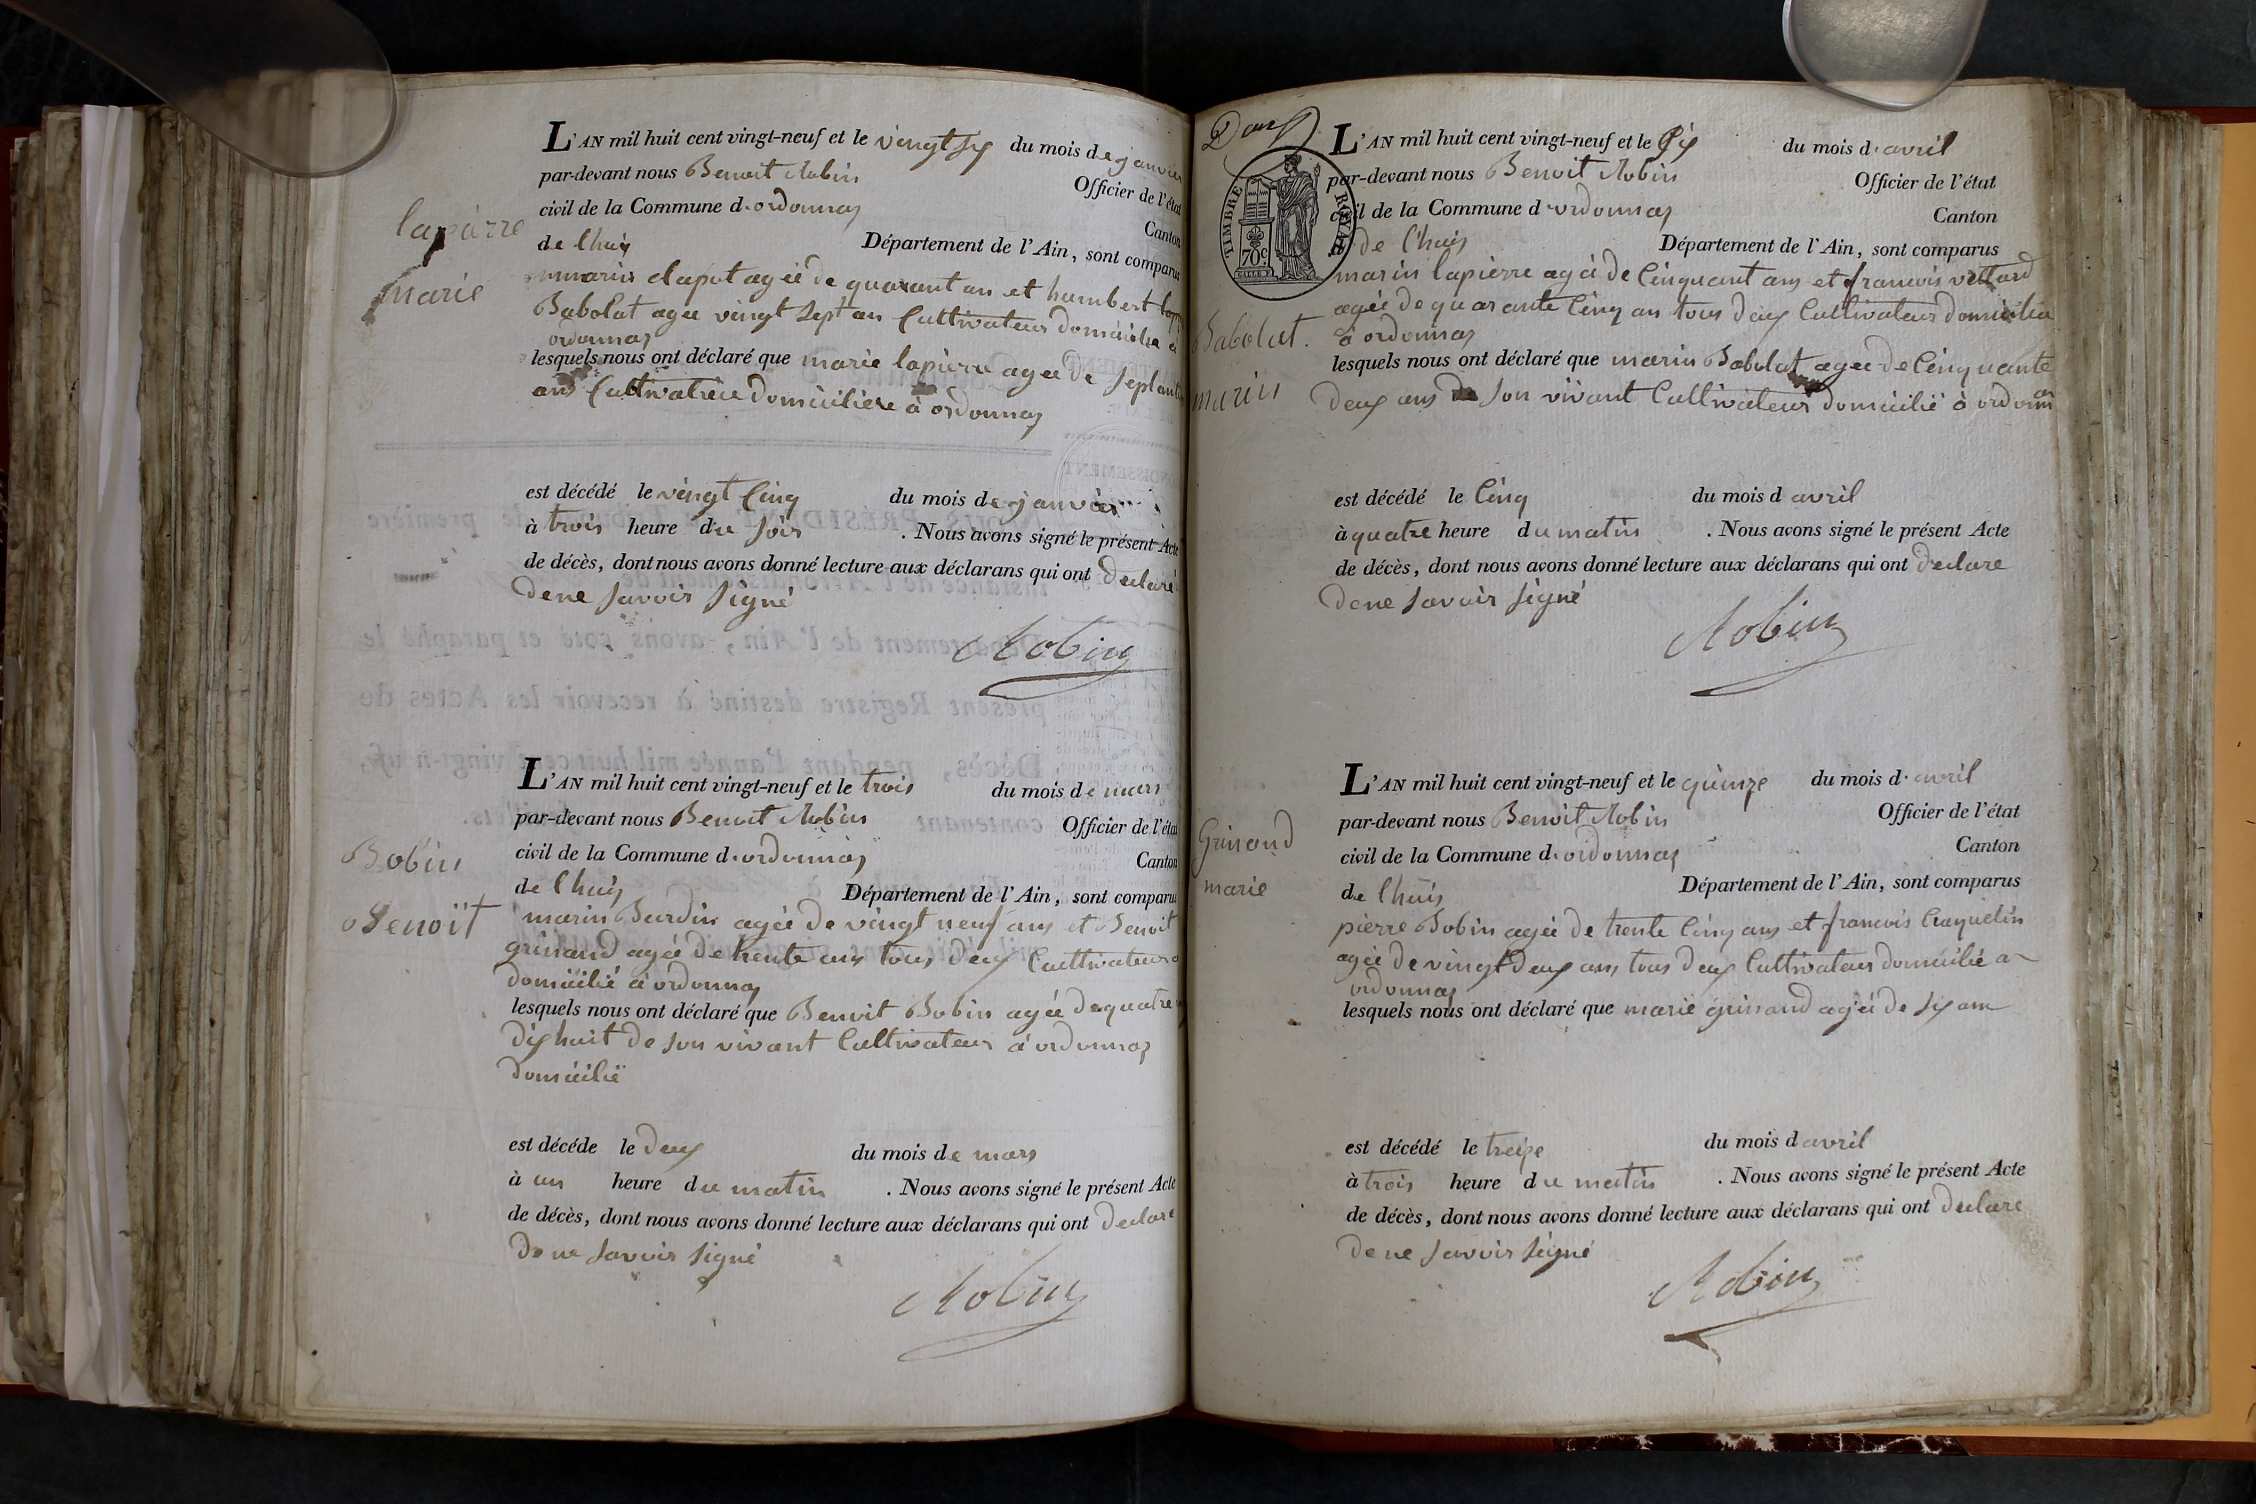 lapierre
marie
L'AN mil huit cent vingt-neuf et le vingt six du mois de janvier
par-devant nous Benoit Robin Officier de l'état
civil de la Commune d'ordonnas Canton
de lhuis Département de l'Ain, sont comparus
marin clapot agée de quarant an et humbert
Babolat agee vingt sept an Cultivateur domicilie a
ordonnas
lesquels nous ont déclaré que marie lapierre agee de septante
ans Cultivatrice domiciliere à ordonnas
est décédé le vingt Cinq du mois de janvier
à trois heure du soir . Nous avons signé le présent Acte
de décès, dont nous avons donné lecture aux déclarans qui ont declaré
de ne savoir signé
Robin
Bobin
Benoit
L'AN mil huit cent vingt-neuf et le trois du mois de mars
par-devant nous Benoit Robin Officier de l'état
civil de la Commune d'ordonnas Canton
de lhuis Département de l'Ain, sont comparus
marin Burdin agée de vingt neuf ans et Benoit
grinand agée de trente ans tous deux Cultivateurs
domicilié à ordonnas
lesquels nous ont déclaré que Benoit Bobin agée de quatre
dix huit de son vivant Cultivateur à ordonnas
domicilié
est décéde le deux du mois de mars
à un heure du matin . Nous avons signé le présent Acte
de décès, dont nous avons donné lecture aux déclarans qui ont declare
de ne savoir signé
Robin
Deux
TIMBRE ROYAL
70 c.
Babolat.
marin
L'AN mil huit cent vingt-neuf et le six du mois d'avril
par-devant nous Benoit Robin Officier de l'état
civil de la Commune d'ordonnas Canton
de lhuis Département de l'Ain, sont comparus
marin lapierre agée de Cinquant ans et francois vettard
agée de quarante Cinq an tous deux Cultivateur domicilie
à ordonnas
lesquels nous ont déclaré que marin Babolat agee de Cinquante
deux ans de son vivant Cultivateur domicilié à ordonnas
est décédé le Cinq du mois d avril
à quatre heure du matin . Nous avons signé le présent Acte
de décès, dont nous avons donné lecture aux déclarans qui ont declare
de ne savoir signé
Robin
Grinand
marie
L'AN mil huit cent vingt-neuf et le quinze du mois d'avril
par-devant nous Benoit Robin Officier de l'état
civil de la Commune d'ordonnas Canton
de lhuis Département de l'Ain, sont comparus
pierre Bobin agée de trente Cinq ans et francois Craquelin
agée de vingt deux ans tous deux Cultivateur domicilié a
ordonnas
lesquels nous ont déclaré que marie grinand agée de six ans
est décédé le treize du mois d avril
à trois heure du matin . Nous avons signé le présent Acte
de décès, dont nous avons donné lecture aux déclarans qui ont declare
de ne savoir signé
Robin